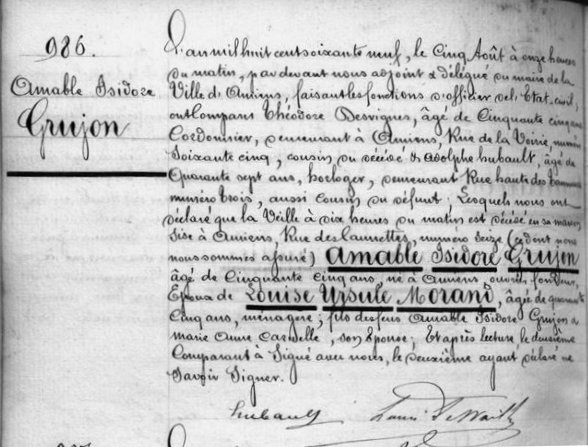 986.
Amable Isidore
Grujon
L'an mil huit cent soixante neuf, le Cinq Août à onze heures
du matin, par devant nous adjoint & délégué du maire de la
Ville d'Amiens, faisant les fonctions d'officier de l'Etat-civil
ont Comparu Théodore Desvignes, âgé de Cinquante cinq ans
Cordonnier, demeurant à Amiens, Rue de la Voirie, numéro
Soixante cinq, cousin du décédé & Adolphe hubault, âgé de
Quarante sept ans, horloger, demeurant Rue haute des
numéro trois, aussi Cousin du défunt ; Lesquels nous ont
déclaré que la Veille à dix heures du matin est décédé en sa maison
Sise à Amiens, Rue des numéro Seize (ce dont nous
nous sommes assuré) Amable Isidore Grujon
âgé de Cinquante Cinq ans, né à Amiens ouvrier fondeur,
Epoux de Louise Ursule Morand, âgée de quarante
Cinq ans, ménagère ; fils des feus Amable Isidore Grujon &
marie Anne son Epouse ; Et après lecture le deuxième
Comparant a Signé avec nous, le deuxième ayant déclaré ne
Savoir Signer.
hubault